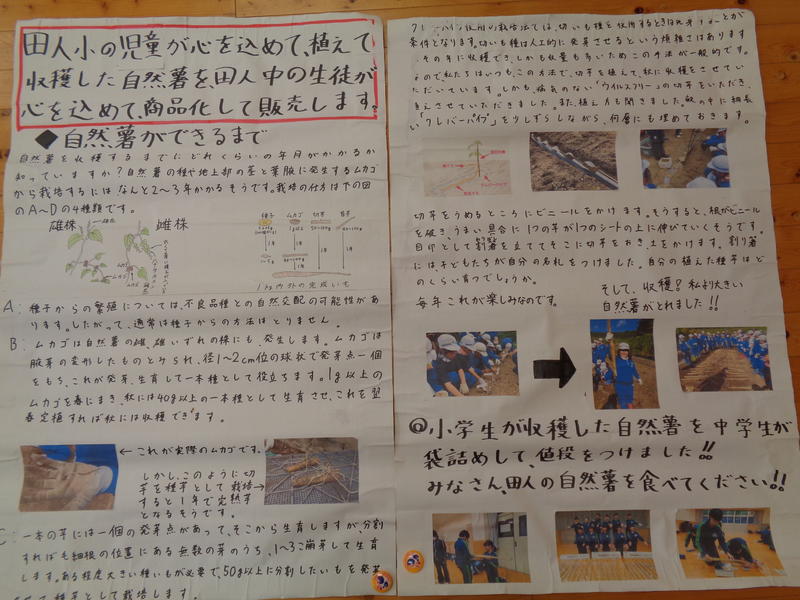 田人小の児童が心を込めて、植えて
収穫した自然薯を、田人中の生徒が
心を込めて、商品化して販売します。
◆自然薯ができるまで
自然薯を収穫するまでにどれくらいの年月がかかるか
知っていますか？自然薯の種や地上部の茎と葉腋に発生するムカゴ
から栽培するにはなんと2〜3年かかるそうです。栽培の仕方は下の図
のA〜Dの4種類です。
雄株
雌株
ムカゴ
種子
ムカゴ
切芋
1年
1年
1年
1kg内外の完成いも
A: 種子からの繁殖については、不良品種との自然交配の可能性があ
ります。したがって、通常は種子からの方法はとりません。
B: ムカゴは自然薯の雌、雄いずれの株にも、発生します。ムカゴは
腋芽の変形したものとみられ、径1〜2cm位の球状で発芽点一個
をもち、これが発芽、生育して一本種として役立ちます。1g以上の
ムカゴを春にまき、秋には40g以上の一本種として生育させ、これを翌
春定植すれば秋には収穫できます。
←これが実際のムカゴです。
しかし、このように切
芋を種芋として栽培→
すると1年で完熟芋
となるそうです。
C: 一本の芋には一個の発芽点があって、そこから生育しますが、分割
すれば毛細根の位置にある無数の芽のうち、1〜3ご萠芽して生育
します。ある程度大きい種いもが必要で、50g以上に分割したいもを発芽
種芋として栽培します。
使用の栽培法では、切いも種を使用するときは
条件となります。切いも種は人工的に発芽させるという煩雑さはあります
その年に収穫でき、しかも収量も多いためこの手法が一般的です。
ので私たちはいつも、この方法で、切芋を植えて、秋に収穫をさせてい
ただいています。しかも、病気のない「ウイルスフリー」の切芋をいただき、
植えさせていただきました。また、植え方も聞きました。畝の中に細長
い「クレバーパイプ」を少しずらしながら、何層にも埋めておきます。
切芋をうめるところにビニールをかけます。そうすると、根がビニール
を破き、うまい具合に1つの芋が1つのシートの上に伸びていくそうです。
目印として割箸を立ててそこに切芋をおき、土をかけます。割り箸
には、子どもたちが自分の名札をつけました。自分の植えた種芋はど
のくらい育つでしょうか。
毎年これが楽しみなのです。
そして、収穫？私より大きい
自然薯がとれました!!
◎小学生が収穫した自然薯を中学生が
袋詰めして、値段をつけました!!
みなさん、田人の自然薯を食べてください!!